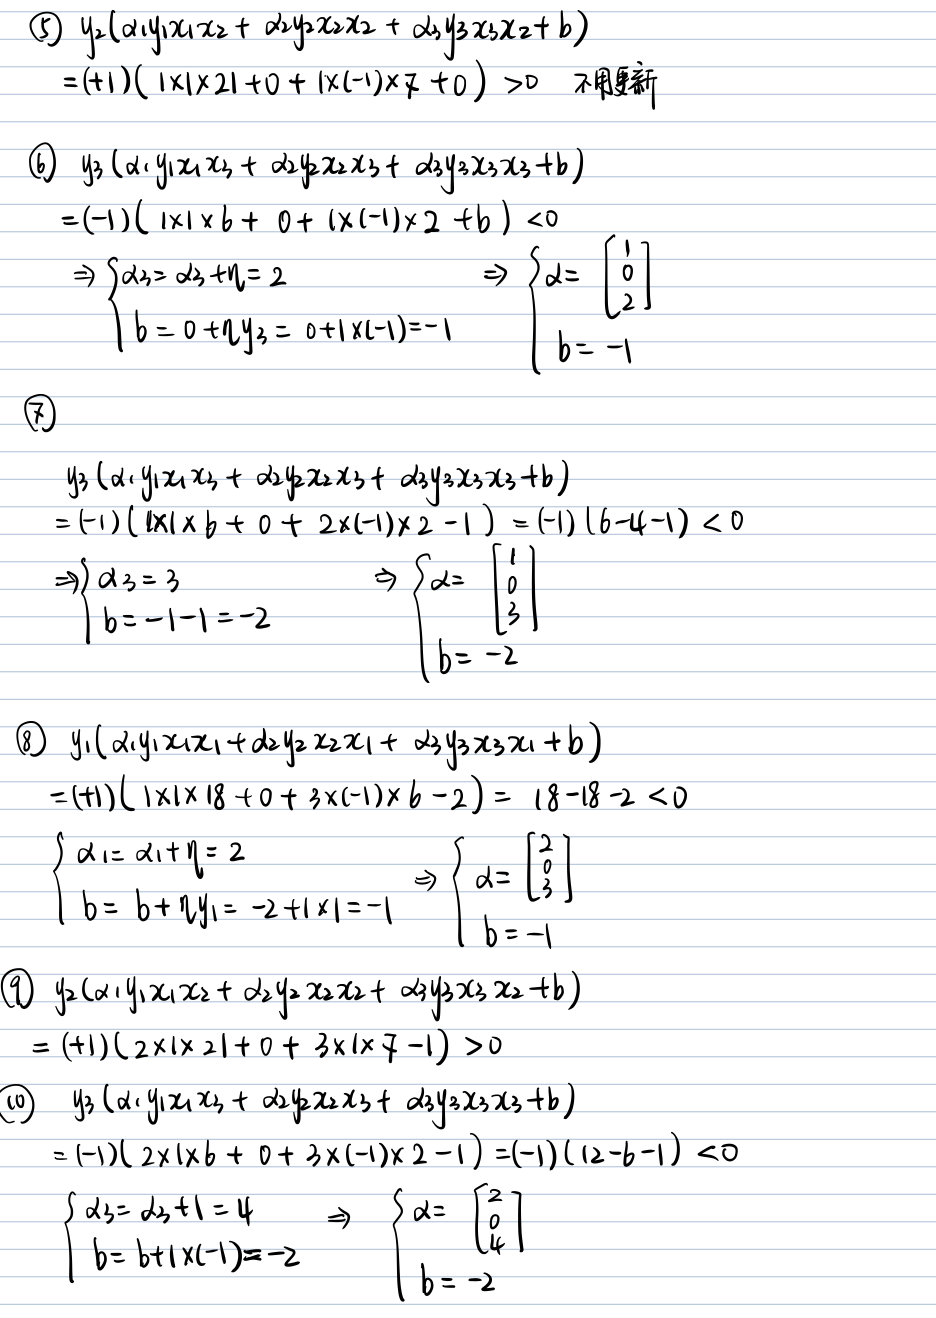 ⑤ y₂(α₁y₁x₁x₂ + α₂y₂x₂x₂ + α₃y₃x₃x₂ + b)
= (+1)( 1×1×21 + 0 + 1×(-1)×7 + 0 ) > 0 不用更新
⑥ y₃(α₁y₁x₁x₃ + α₂y₂x₂x₃ + α₃y₃x₃x₃ + b)
= (-1)( 1×1×6 + 0 + 1×(-1)×2 + b ) < 0
⇒ { α₃ = α₃ + η = 2 ⇒ { α = [1 0 2]
b = 0 + ηy₃ = 0 + 1×(-1) = -1 b = -1
⑦
y₃(α₁y₁x₁x₃ + α₂y₂x₂x₃ + α₃y₃x₃x₃ + b)
= (-1)( 1×1×6 + 0 + 2×(-1)×2 - 1 ) = (-1)(6-4-1) < 0
⇒ { α₃ = 3 ⇒ { α = [1 0 3]
b = -1-1 = -2 b = -2
⑧ y₁(α₁y₁x₁x₁ + α₂y₂x₂x₁ + α₃y₃x₃x₁ + b)
= (+1)( 1×1×18 + 0 + 3×(-1)×6 - 2 ) = 18-18-2 < 0
{ α₁ = α₁ + η = 2 ⇒ { α = [2 0 3]
b = b + ηy₁ = -2+1×1 = -1 b = -1
⑨ y₂(α₁y₁x₁x₂ + α₂y₂x₂x₂ + α₃y₃x₃x₂ + b)
= (+1)( 2×1×21 + 0 + 3×1×7 - 1 ) > 0
⑩ y₃(α₁y₁x₁x₃ + α₂y₂x₂x₃ + α₃y₃x₃x₃ + b)
= (-1)( 2×1×6 + 0 + 3×(-1)×2 - 1 ) = (-1)(12-6-1) < 0
{ α₃ = α₃ + 1 = 4 ⇒ { α = [2 0 4]
b = b+1×(-1) = -2 b = -2